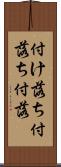 付け落ち付
落ち付落